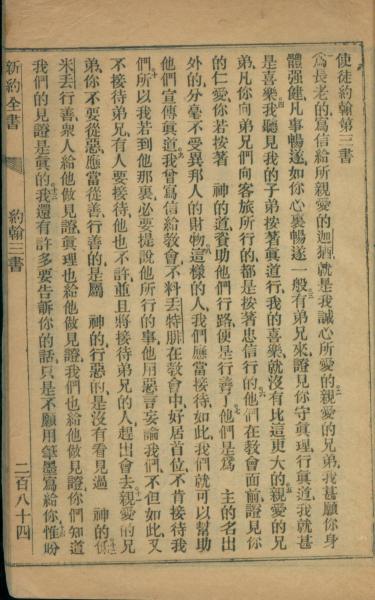 使徒約翰第三書
爲長老的爲信給所親愛的迦猶就是我誠心所愛的親愛的兄弟我甚願你身
體强健凡事暢遂如你心裏暢遂一般有弟兄來證見你守眞理行眞道我就甚
是喜樂我聽見我的子弟按著眞道行我的喜樂就沒有比這更大的親愛的兄
弟凡你向弟兄們向客旅所行的都是按著忠信行的他們在教會面前證見你
的仁愛你若按著 神的道資助他們行路便是行善了他們是爲 主的名出
外的分毫不受異邦人的財物這樣的人我們應當接待如此我們就可以幫助
他們宣傳眞道我曾寫信給教會不料丟特腓在教會中好居首位不肯接待我
們所以我若到他那裏必要提說他所行的事他用惡言妄論我們不但如此又
不接待弟兄有人要接待他也不許並且將接待弟兄的人趕出會去親愛的兄
弟你不要從惡應當從善行善的是屬 神的行惡的是沒有看見過 神的低
米丟行善衆人給他做見證眞理也給他做見證我們也給他做見證你們知道
我們的見證是眞的我還有許多要告訴你的話只是不願用筆墨寫給你惟盼
新約全書
約翰三書
二百八十四